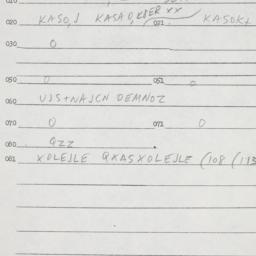 010
020 KASO,J KASAO,KBER XX 021 KASOK,
030 0
050 0 051 0
060 UJS+NAJCN DEMNOZ
070 0 071 0
080 9ZZ
081 XOLEJLE QXASXOLEJLE (108 (113